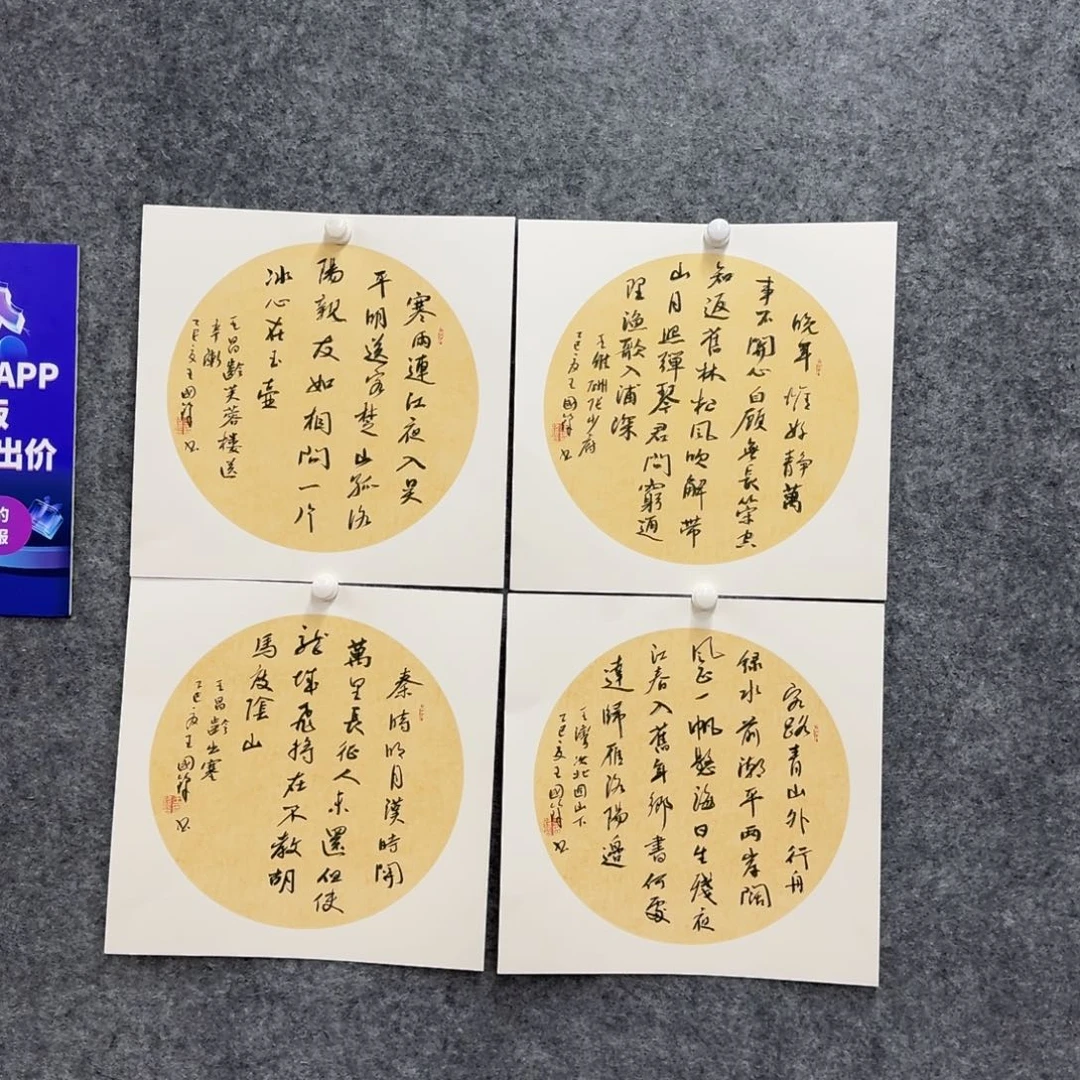 APP
出价
的
报
寒雨連江夜入吴
平明送客楚山孤洛
陽親友如相問一片
冰心在玉壺
王昌齡芙蓉樓送
辛漸
乙巳夏王國 书
晚年惟好静萬
事不關心自顧無長策空
知返舊林松風吹解帶
山月照彈琴君問窮通
理漁歌入浦深
王維酬张少府
乙巳夏王國 书
秦時明月漢時關
萬里長征人未還但使
龍城飛將在不教胡
馬度陰山
王昌齡出塞
乙巳夏王國 书
客路青山外行舟
绿水前潮平兩岸闊
風正一帆懸海日生殘夜
江春入舊年鄉書何處
達歸雁洛陽邊
王灣次北固山下
乙巳夏王國 书